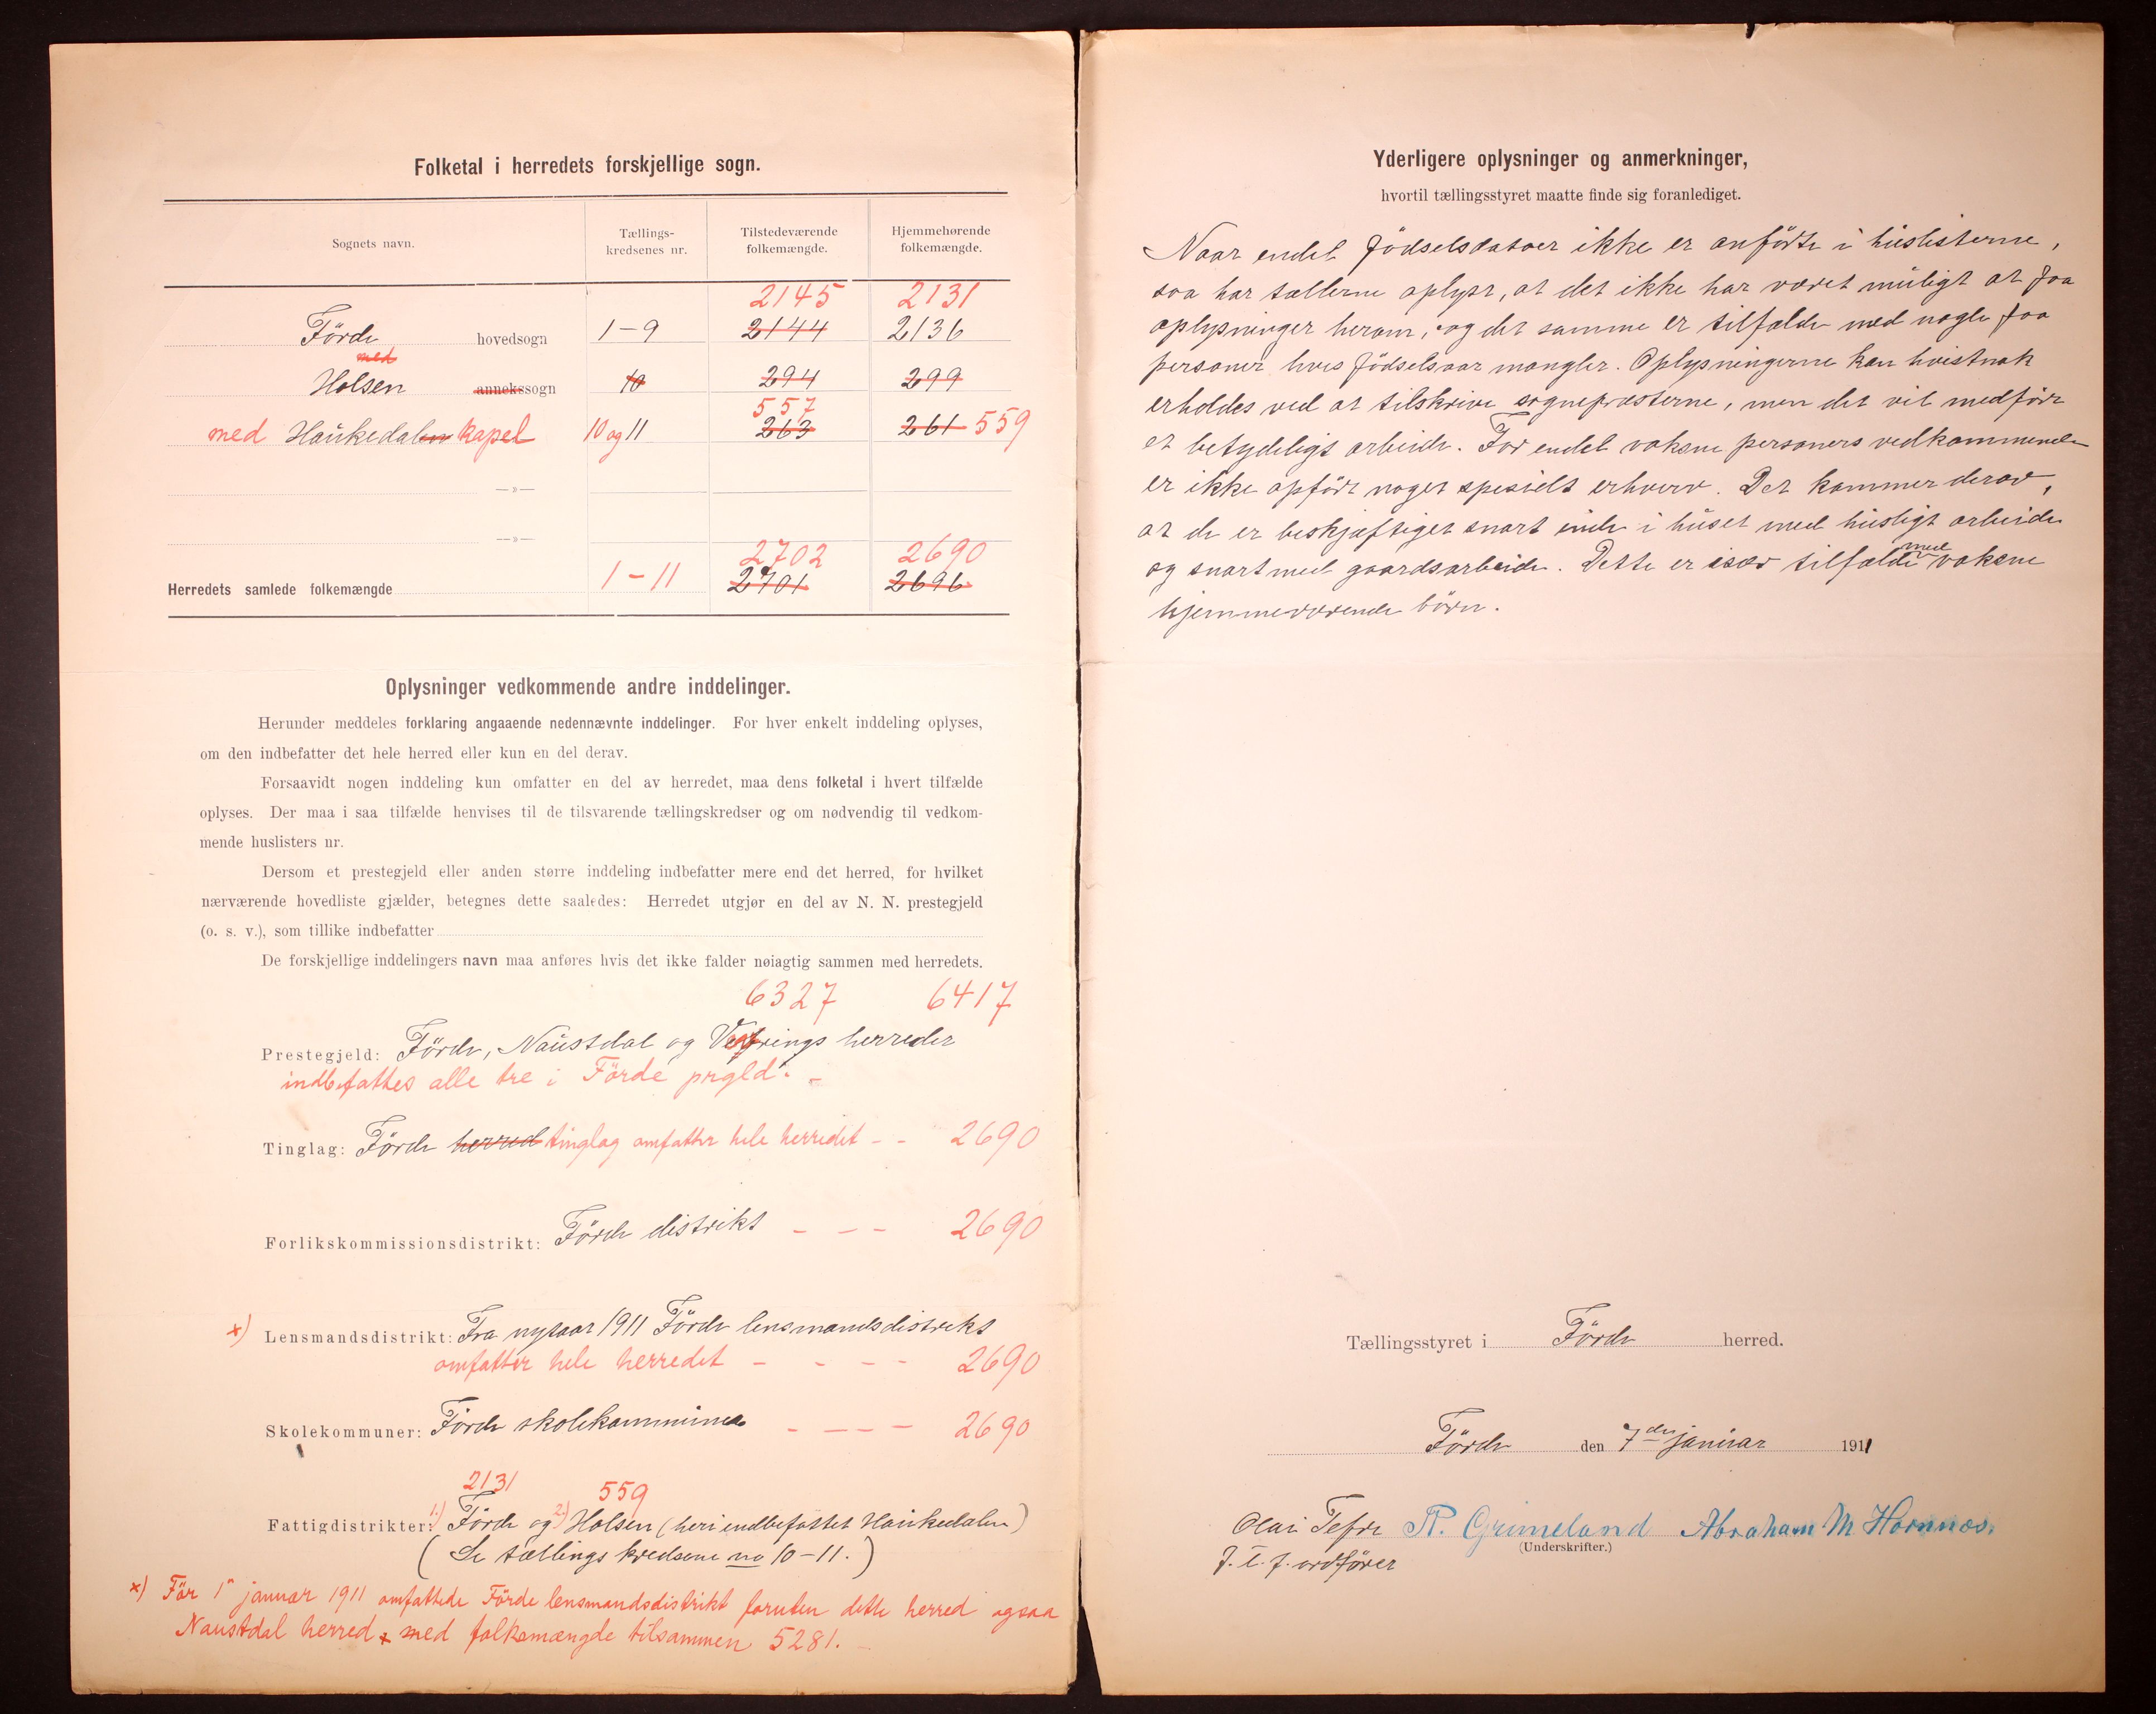 Folketal i herredets forskjellige sogn.
Sognets navn.
Tællings-
kredsenes nr.
Tilstedeværende
folkemængde.
Hjemmehørende
folkemængde.
2145 2131
Förde hovedsogn 1-9 2144 2136
med
Holsen annekssogn 10 294 299
557
med Haukedalen kapel 10 og 11 263 261 559
—»—
—»—
2702 2690
Herredets samlede folkemængde 1-11 2701 2696
Oplysninger vedkommende andre inddelinger.
Herunder meddeles forklaring angaaende nedennævnte inddelinger. For hver enkelt inddeling oplyses,
om den indbefatter det hele herred eller kun en del derav.
Forsaavidt nogen inddeling kun omfatter en del av herredet, maa dens folketal i hvert tilfælde
oplyses. Der maa i saa tilfælde henvises til de tilsvarende tællingskredser og om nødvendig til vedkom-
mende huslisters nr.
Dersom et prestegjeld eller anden større inddeling indbefatter mere end det herred, for hvilket
nærværende hovedliste gjælder, betegnes dette saaledes: Herredet utgjør en del av N. N. prestegjeld
(o. s. v.), som tillike indbefatter
De forskjellige inddelingers navn maa anføres hvis det ikke falder nøiagtig sammen med herredets.
6327 6417
Prestegjeld: Förde, Naustdal og Vevrings herreder
indbefattes alle tre i Förde prgld. -
Tinglag: Förde herred tinglag omfatter hele herredet - - 2690
Forlikskommissionsdistrikt: Förde distrikt - - - 2690
x) Lensmandsdistrikt: Fra nyaar 1911 Förde lensmandsdistrikt
omfatter hele herredet - - - - 2690
Skolekommuner: Förde skolekommune - - - - 2690
2131 559
Fattigdistrikter: 1) Förde og 2) Holsen (heri indbefattet Haukedalen)
(Se tællingskredsene no 10-11.)
x) Før 1ⁿ januar 1911 omfattede Förde lensmandsdistrikt foruten dette herred ogsaa
Naustdal herred x med folkemængde tilsammen 5281. -
Yderligere oplysninger og anmerkninger,
hvortil tællingsstyret maatte finde sig foranlediget.
Naar endel födselsdatoer ikke er anförte i huslisterne,
saa har tællerne oplyst, at det ikke har været muligt at faa
oplysninger herom, og det samme er tilfælde med nogle faa
personer hvis födselsaar mangler. Oplysningerne kan hvistnok
erholdes ved at tilskrive sognepræsterne, men det vil medföre
et betydeligt arbeide. For endel voksne personers vedkommende
er ikke opfört noget spesielt erhverv. Det kommer derav,
at de er beskjæftiget snart inde i huset med husligt arbeide
og snart med gaardsarbeide. Dette er især tilfælde med voksne
hjemmeværende börn.
Tællingsstyret i Förde herred.
Förde den 7de januar 1911
Olai Tefre P. Grimeland Abraham M Hornnes.
(Underskrifter.)
f. t. f. ordförer